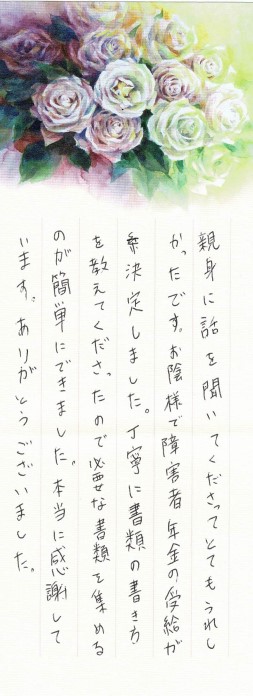 親身に話を聞いてくださってとてもうれし
かったです。お陰様で障害者年金の受給が
決定しました。丁寧に書類の書き方
を教えてくださったので必要な書類を集める
のが簡単にできました。本当に感謝して
います。ありがとうございました。